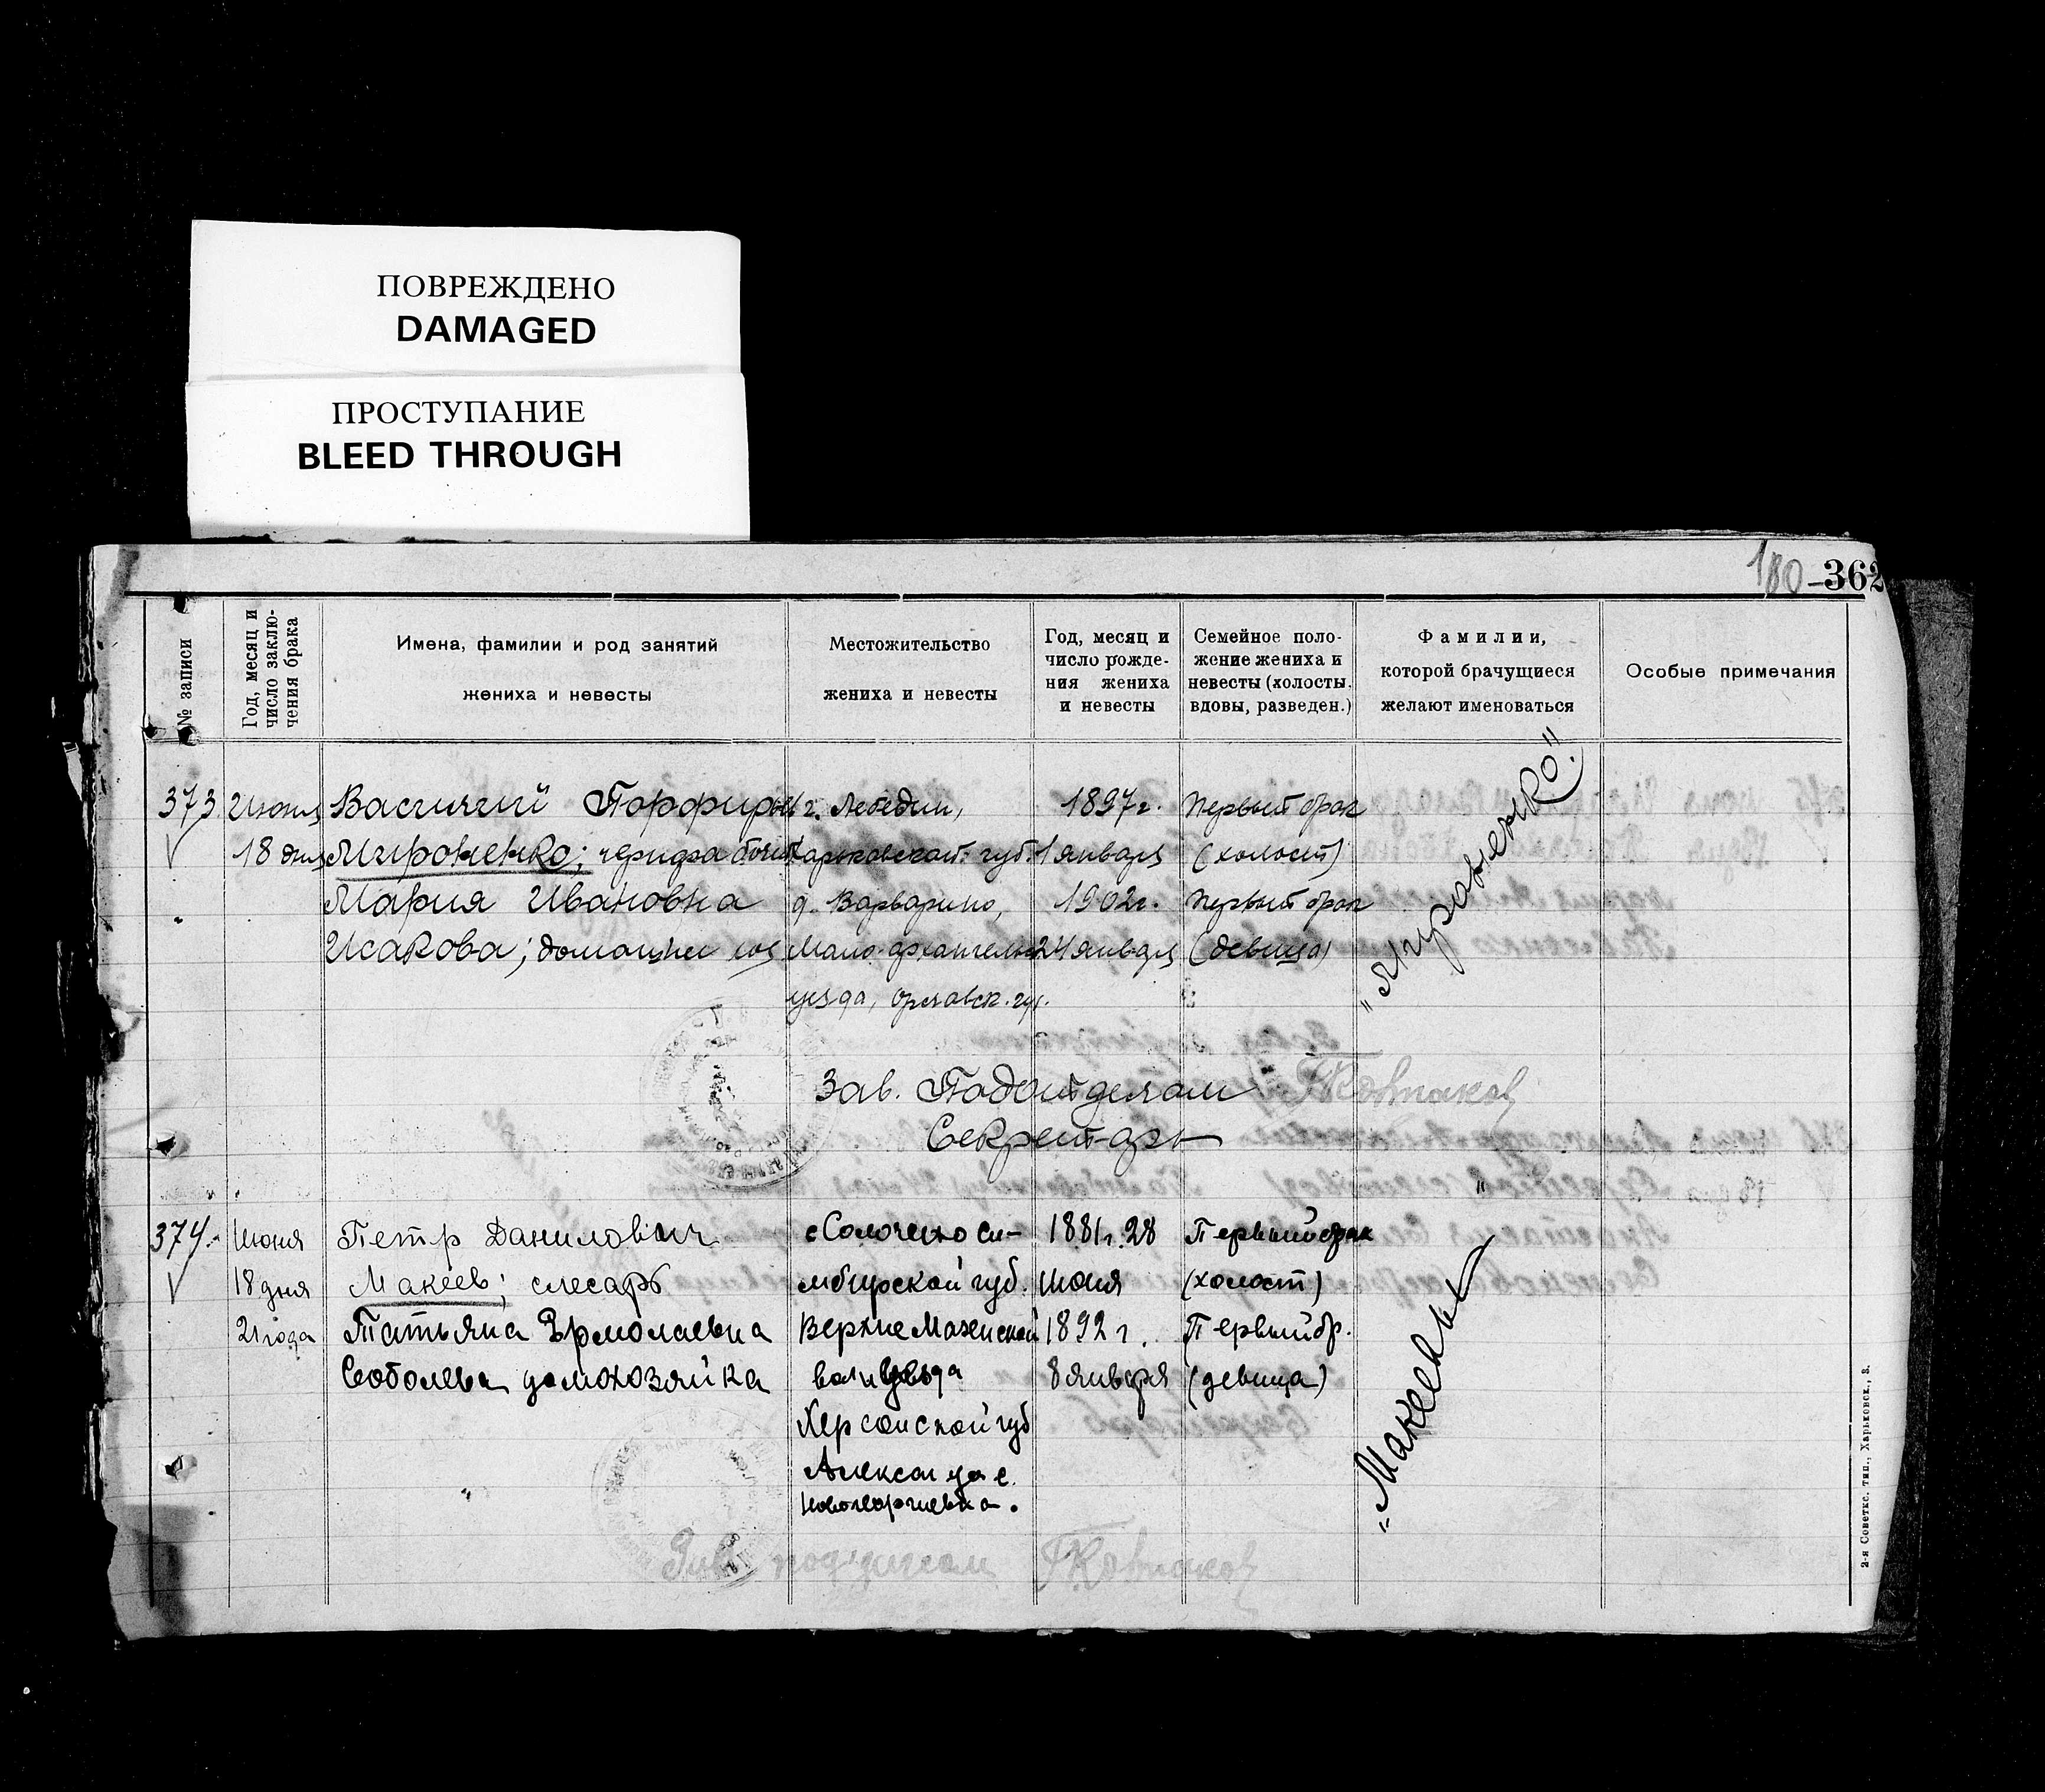 ПОВРЕЖДЕНО
DAMAGED
ПРОСТУПАНИЕ
BLEED THROUGH
180 – 362
№ записи
Год, месяц и число заклю-
чения брака
Имена, фамилии и род занятий
жениха и невесты
Местожительство
жениха и невесты
Год, месяц и
число рожде-
ния жениха
и невесты
Семейное поло-
жение жениха и
невесты (холосты,
вдовы, разведен.)
Фамилии,
которой брачущиеся
желают именоваться
Особые примечания
373 Июня Василий Порфирьев г. Лебедин, 1897 г. Первый брак
18 дня Мироненко; Харьковской губ. 1 января (холост)
Мария Ивановна д. Варварино, 1902 г. Первый брак
Исакова; Мало-архангельск 24 января (девица)
уезда, Орловск. губ.
„Мироненко"
Зав. Подотделом
Секретарь
374 Июня Петр Данилович с Солочено Си- 1881 г. 28 Первый брак
18 дня Макеев; слесарь мбирской губ. июня (холост)
21 года Татьяна Ермолаевна 1892 г. Первый бр.
Соболева домохозяйка 8 января (девица)
Херсонской губ
с.
Новогеоргиевка.
„Макеевы"
Зав. подотделом
2-я Советск. тип., Харьковск., 3.